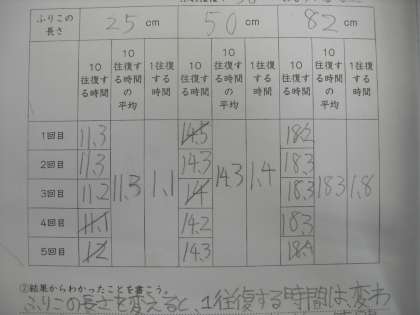 ふりこの長さ 25 cm 50 cm 82 cm
10往復する時間 10往復する時間の平均 1往復する時間 10往復する時間 10往復する時間の平均 1往復する時間 10往復する時間 10往復する時間の平均 1往復する時間
1回目 11.3 14.5 18.2
2回目 11.3 14.3 18.3
3回目 11.2 11.3 1.1 14 14.3 1.4 18.3 18.3 1.8
4回目 11.1 14.2 18.3
5回目 12 14.3 18.4
②結果からわかったことを書こう。
ふりこの長さを変えると、1往復する時間は、変わ